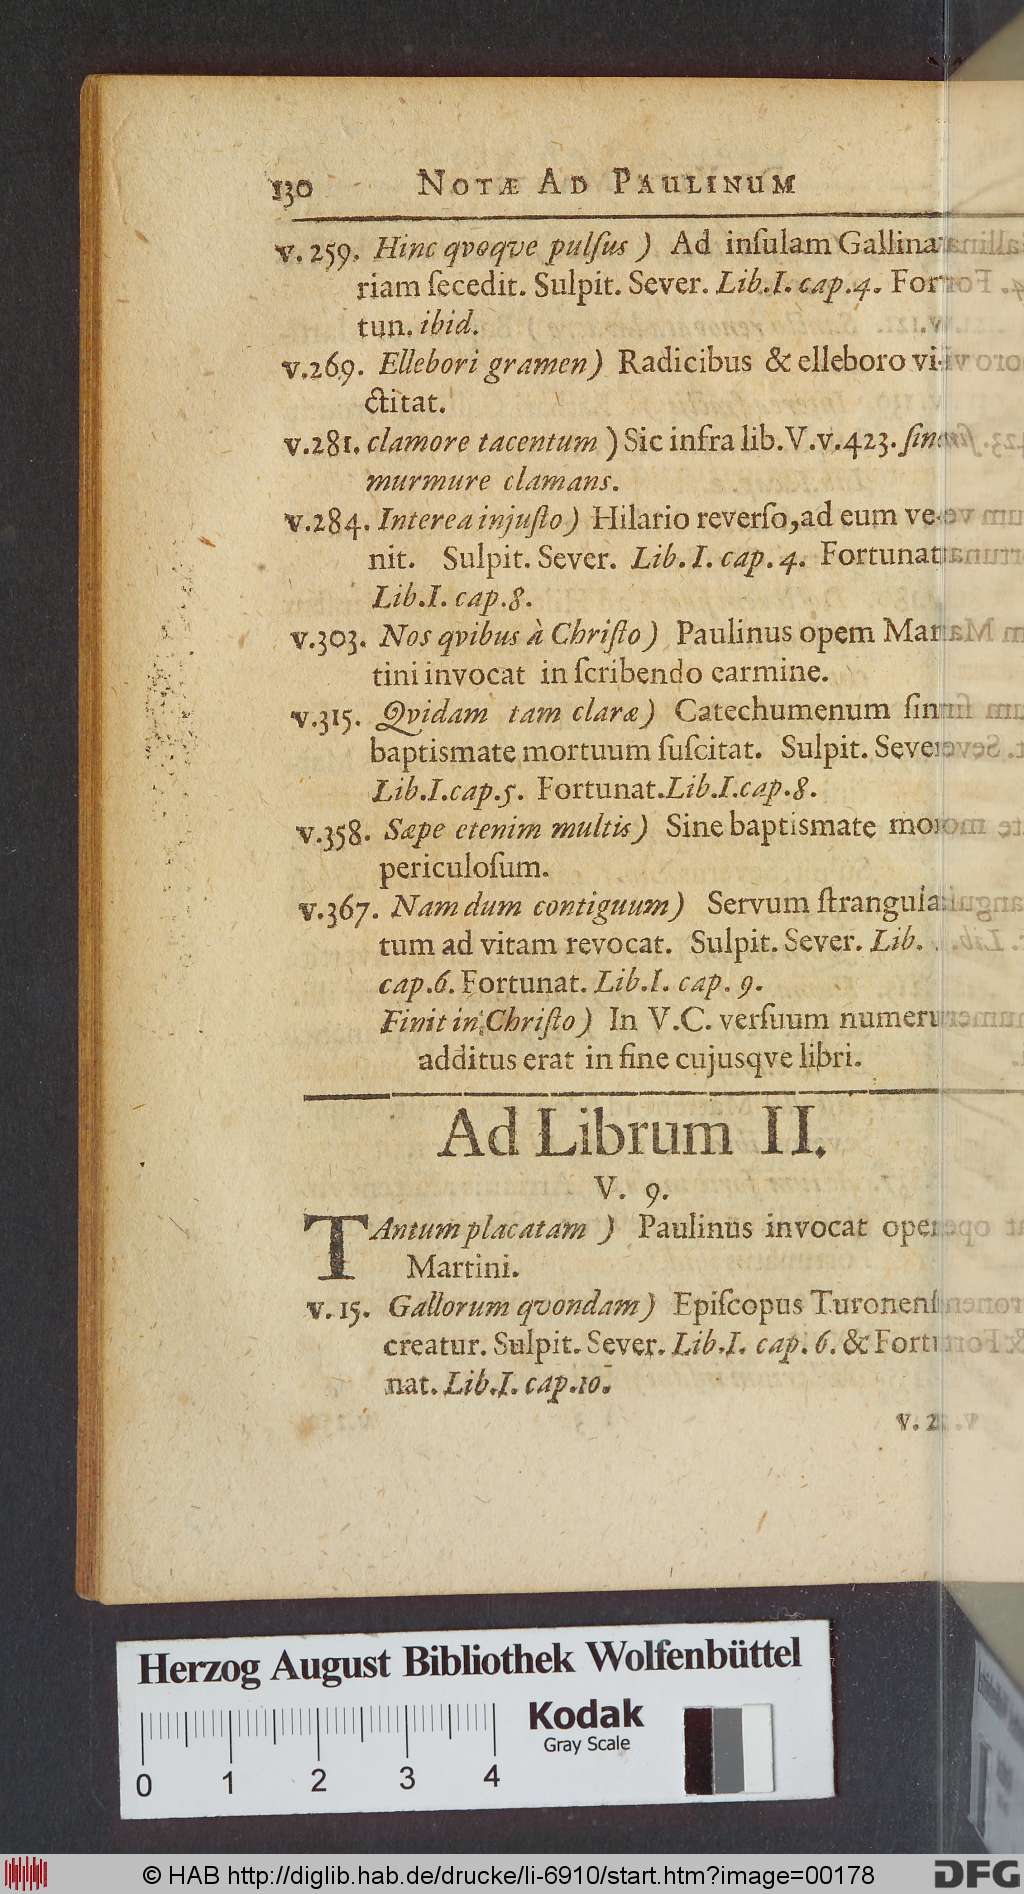 130 NOTÆ AD PAULINUM
v. 259. Hinc qvoqve pulſus ) Ad inſulam Gallina
riam ſecedit. Sulpit. Sever. Lib. I. cap. 4. For
tun. ibid.
v. 269. Ellebori gramen ) Radicibus & elleboro vi-
ctitat.
v. 281. clamore tacentum ) Sic infra lib. V. v. 423. ſine
murmure clamans.
v. 284. Interea injuſto ) Hilario reverſo, ad eum ve-
nit. Sulpit. Sever. Lib. I. cap. 4. Fortunat
Lib. I. cap. 8.
v. 303. Nos qvibus à Chriſto ) Paulinus opem Mar
tini invocat in ſcribendo carmine.
v. 315. Qvidam tam claræ ) Catechumenum ſin
baptismate mortuum ſuſcitat. Sulpit. Seve
Lib. I. cap. 5. Fortunat. Lib. I. cap. 8.
v. 358. Sæpe etenim multis ) Sine baptismate mo
periculoſum.
v. 367. Nam dum contiguum ) Servum ſtrangula
tum ad vitam revocat. Sulpit. Sever. Lib.
cap. 6. Fortunat. Lib. I. cap. 9.
Finit in Chriſto ) In V. C. verſuum numeru
additus erat in fine cujusqve libri.
Ad Librum II.
V. 9.
TAntum placatam ) Paulinus invocat ope
Martini.
v. 15. Gallorum qvondam ) Epiſcopus Turonenſ
creatur. Sulpit. Sever. Lib. I. cap. 6. & Fortu
nat. Lib. I. cap. 10.
v. 2
Herzog August Bibliothek Wolfenbüttel
Kodak
Gray Scale
0 1 2 3 4
© HAB http://diglib.hab.de/drucke/li-6910/start.htm?image=00178
DFG